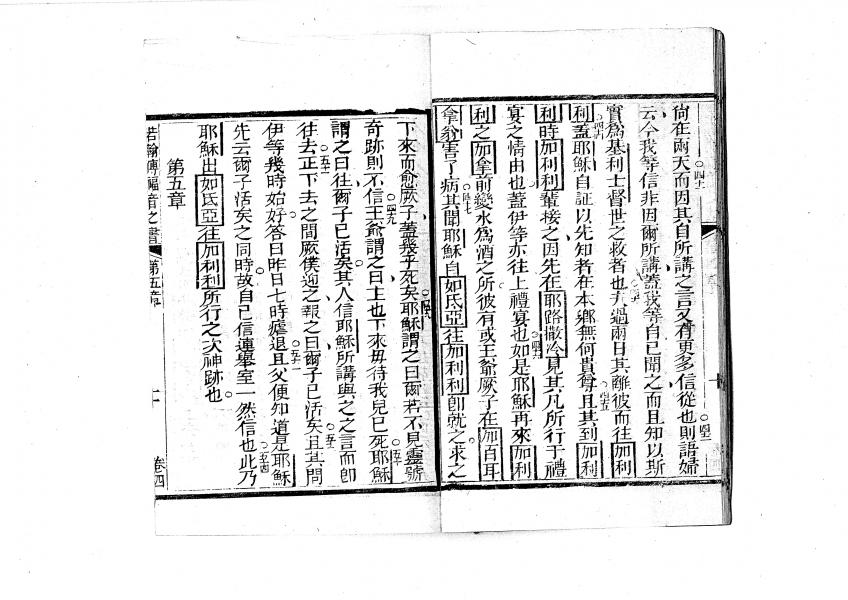 尙在兩天而因其自所講之言又有更多信從也則語婦
云今我等信非因爾所講蓋我等自已聞之而且知以斯
實爲基利士督世之救者也夫過兩日其離彼而往加利
利蓋耶穌自証以先知者在本鄉無何貴尊且其到加利
利時加利利輩接之因先在耶路撒冷見其凡所行于禮
宴之情由也蓋伊等亦往上禮宴也如是耶穌再來加利
利之加拿前變水爲酒之所彼有或王爺厥子在加百耳
拿翁害了病其聞耶穌自如氐亞往加利利卽就之求之
下來而愈厥子蓋幾乎死矣耶穌謂之曰爾若不見靈號
奇跡則不信王爺謂之曰主也下來毋待我兒已死耶穌
謂之曰往爾子已活矣其人信耶穌所講與之之言而卽
往去正下去之間厥僕迎之報之曰爾子已活矣且其問
伊等幾時始好答曰昨日七時瘧退且父便知道是耶穌
先云爾子活矣之同時故自己信連舉室一然信也此乃
耶穌出如氐亞往加利利所行之次神跡也
第五章
若翰傳福音之書 第五章 十一 卷四